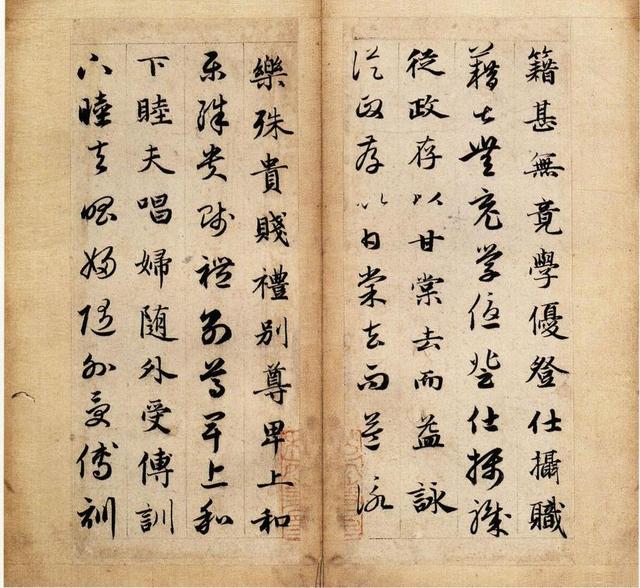 籍甚無竟學優登仕攝職
籍甚無竟學優登仕攝職
從政存以甘棠去而益詠
從政存以甘棠去而益詠
樂殊貴賤禮別尊卑上和
樂殊貴賤禮別尊卑上和
下睦夫唱婦随外受傅訓
下睦夫唱婦随外受傅訓